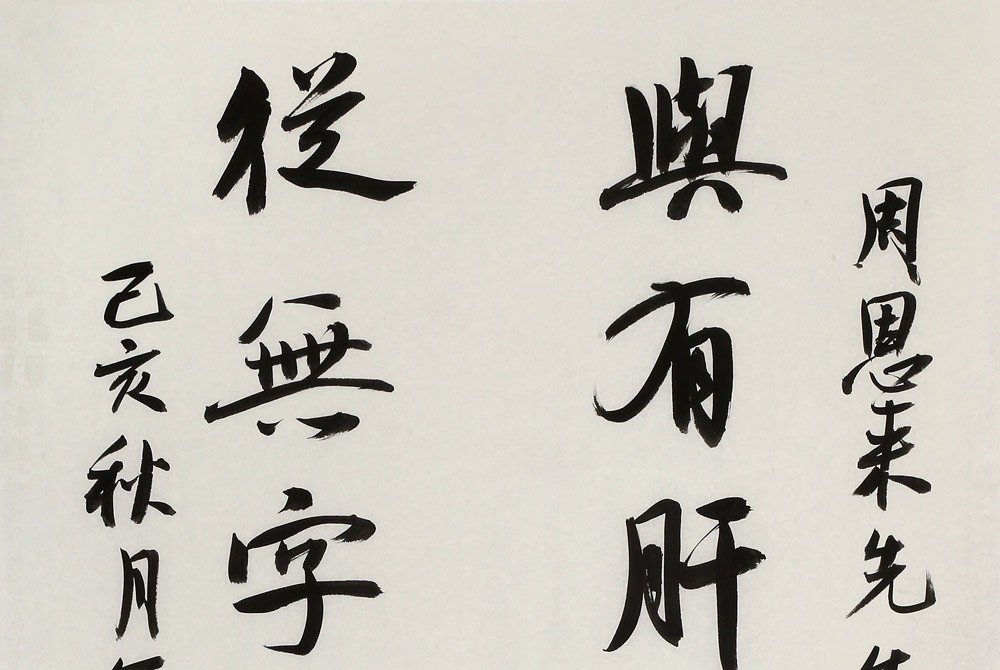 周恩来先
與有肝
從無字
己亥秋月